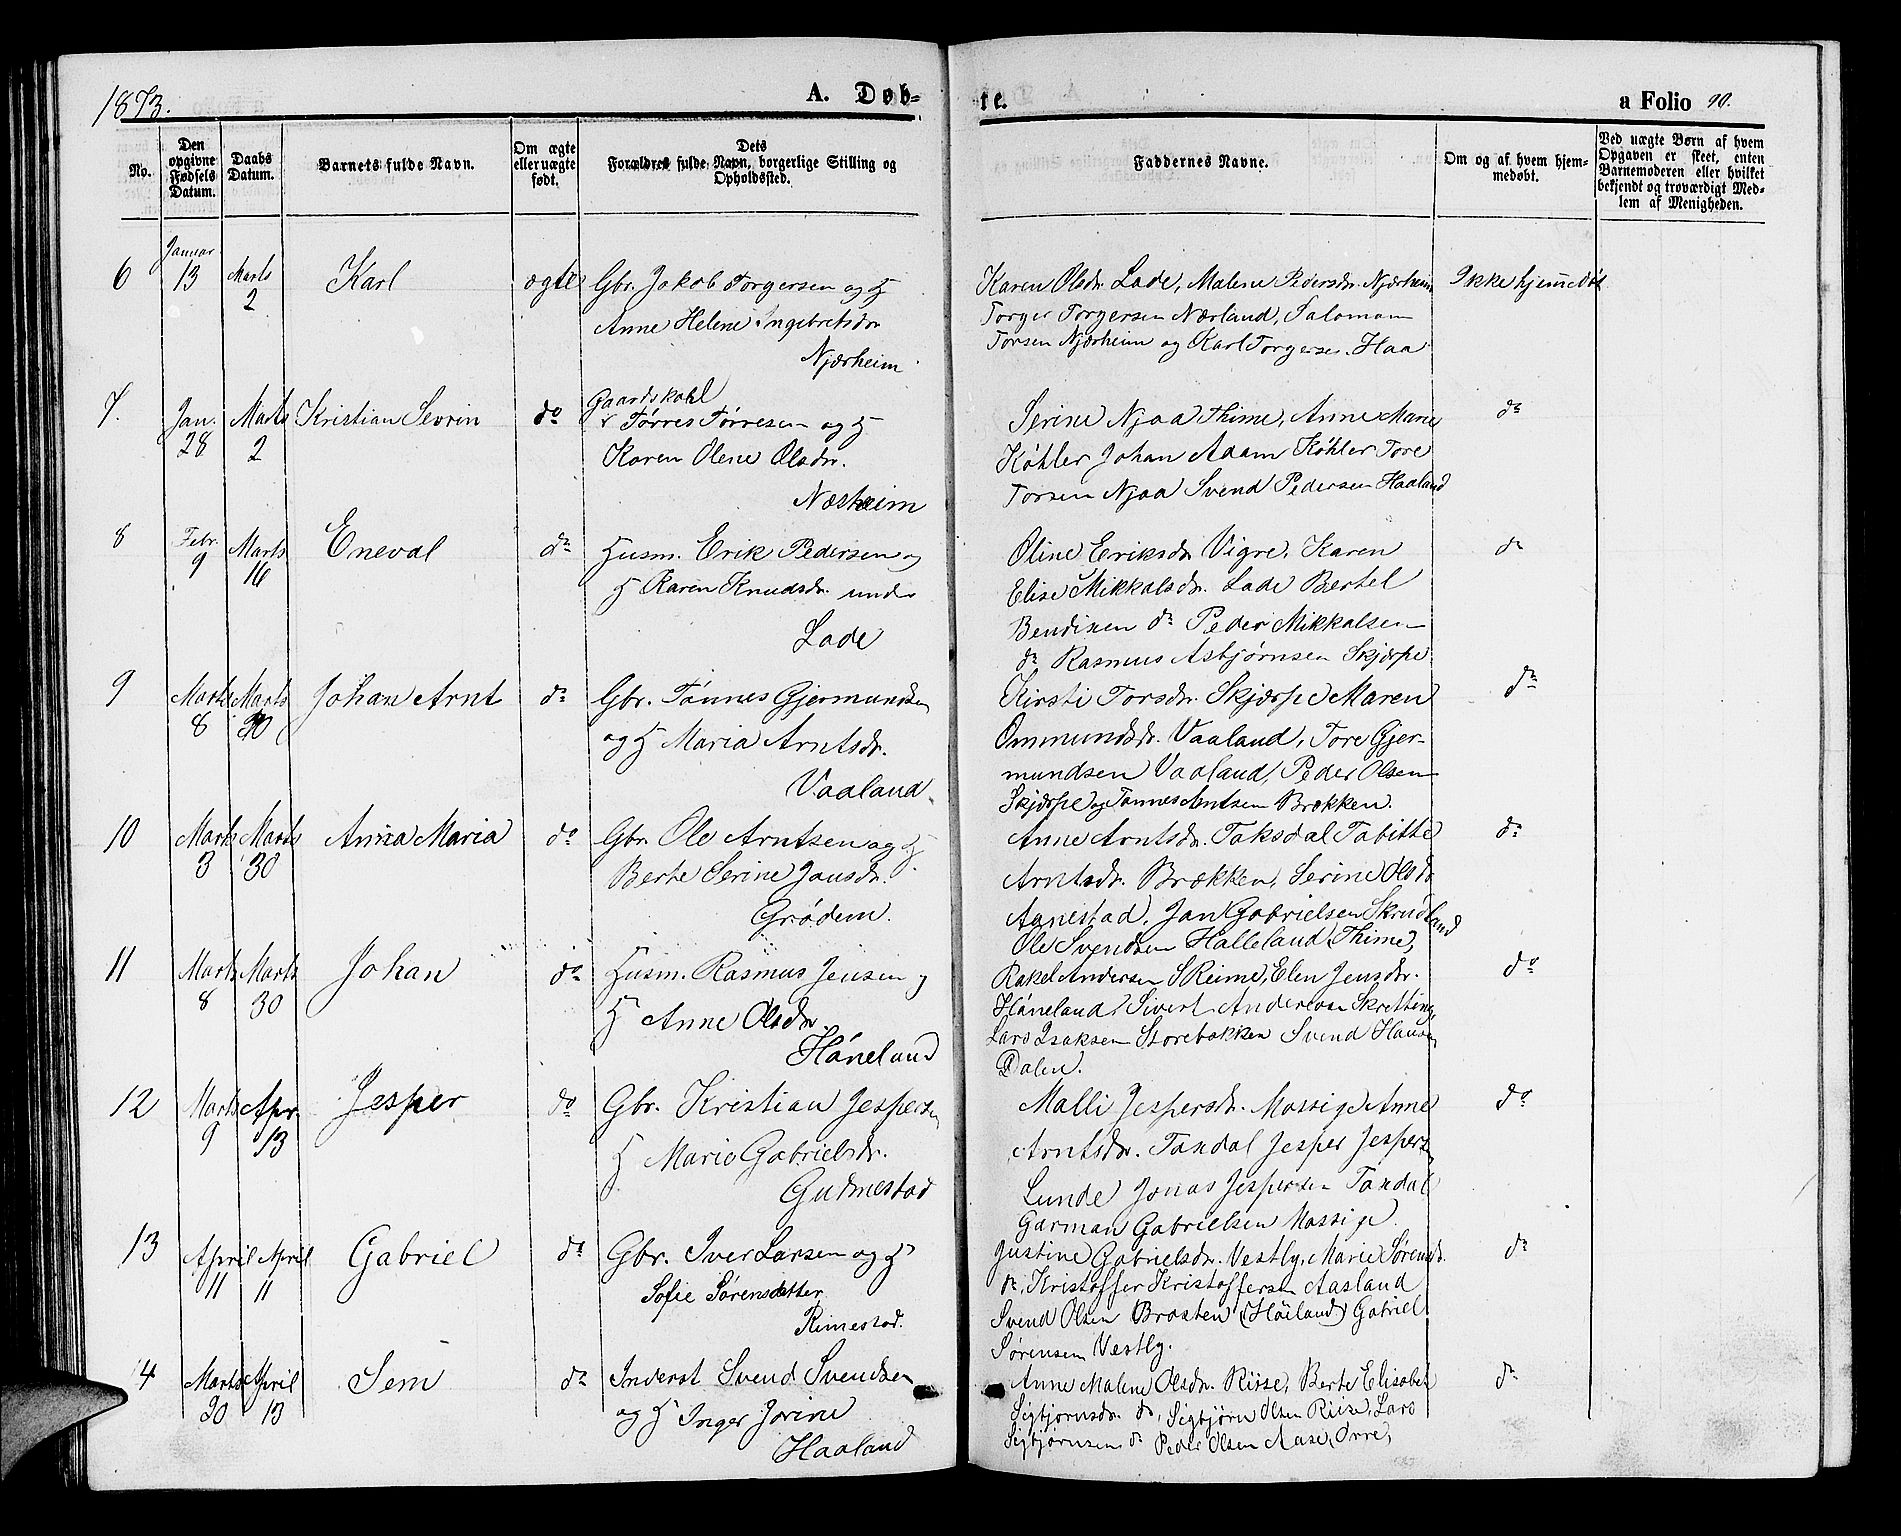 1873.
A. Døb-
te.
a Folio 90.
No.
Den opgivne Fødsels Datum.
Daabs Datum.
Barnets fulde Navn.
Om ægte eller uægte født.
Dets Forældres fulde Navn, borgerlige Stilling og Opholdssted.
Faddernes Navne.
Om og af hvem hjem-
medøbt.
Ved uægte Børn af hvem
Opgaven er skeet, enten
Barnemoderen eller hvilket
bekjendt og troværdigt Med-
lem af Menigheden.
6 Januar 13 Marts 2 Karl ægte Gbr. Jakob Torgersen og H
Anne Helene Ingebretsdr.
Njærheim
Karen Olsdr. Lade, Malene Pedersdr. Njærheim
Torger Torgersen Nærland, Salomon
Torsen Njærheim og Karl Torgersen Haa
Ikke hjemmedøbt
7. Jan. 28 Marts 2 Kristian Sevrin do Gaardskahl
Tørres Tørresen og H
Karen Olene Olsdr.
Næsheim
Serine Njaa Thime, Anne Marie
Køhler Johan Adam Køhler Tore
Torsen Njaa Svend Pedersen Haaland
do
8 Febr. 9 Marts 16 Eneval do Husm. Erik Pedersen og
H Karen Knudsdr. under
Lade
Oline Eriksdr. Vigre, Karen
Elise Mikkalsdr. Lade Bertel
Bendixen do Peder Mikkalsen
do Rasmus Asbjørnsen Skjærpe
do
9 Marts 8 Marts 30 Johan Arnt do Gbr. Tønnes Gjermundsen
og H Maria Arntsdr.
Vaaland
Kirsti Torsdr. Skjærpe Maren
Ommundsdr. Vaaland, Tore Gjer-
mundsen Vaaland, Peder Olsen
Skjærpe og Tønnes Arntsen Brække.
do
10 Marts 3 Marts 30 Anna Maria do Gbr. Ole Arntsen og H
Berte Serine Jansdr.
Grødem.
Anne Arntsdr. Taksdal Tabitte
Arntsdr. Brækken, Serine Olsdr
Aanestad, Jan Gabrielsen Skrudland
Ole Svendsen Halleland Thime,
do
11 Marts 8 Marts 30 Johan do Husm. Rasmus Jensen og
H Anne Olsdr.
Håneland
Rakel Andersen S Reime, Elen Jensdr.
Håneland, Sivert Andersen Skretting,
Lars Isaksen Storebækken Svend Hansen
Dalen.
do
12 Marts 9 Apr. 13 Jesper do Gbr. Kristian Jespersen
H Marie Gabrielsdr.
Gudmestad
Malli Jespersdr. Mossige Anne
Arntsdr. Tandal Jesper Jespersen
Lunde Jonas Jespersen Tandal
Garman Gabrielsen Mossige
do
13 April 11 April 11 Gabriel do Gbr. Iver Larsen og H
Sofie Sørensdatter
Rimestad.
Justine Gabrielsdr. Vestly, Marie Sørensd.
do, Kristoffer Kristoffersen Aasland
Svend Olsen Brasten (Høiland) Gabriel
Sørensen Vestly.
do
14 Marts 30 April 13 Sem do Inderst Svend Svendsen
og H Inger Jorine
Haaland
Anne Malene Olsdr. Riise, Berte Elisabet
Sigbjørnsdr. do, Sigbjørn Olsen Riise, Lars
Sigbjørnsen do Peder Olsen Aase, Orre,
do